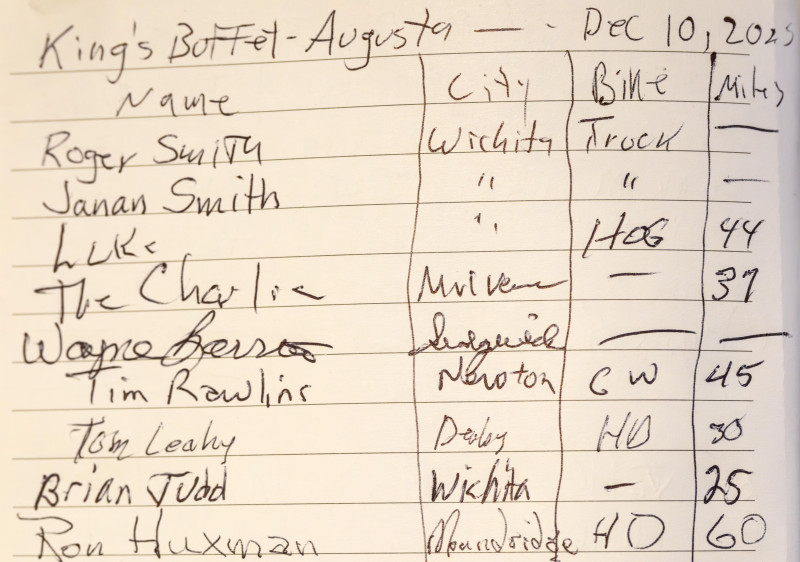 King's Buffet - Augusta — - Dec 10, 2025
Name City Bike Miles
Roger Smith Wichita Truck —
Janan Smith " " —
Luke " HOG 44
The Charlie Mulvane — 37
Wayne Sedgwick — —
Tim Rawlins Newton GW 45
Tom Leahy Derby HD 30
Brian Judd Wichita — 25
Ron Huxman Moundridge HD 60